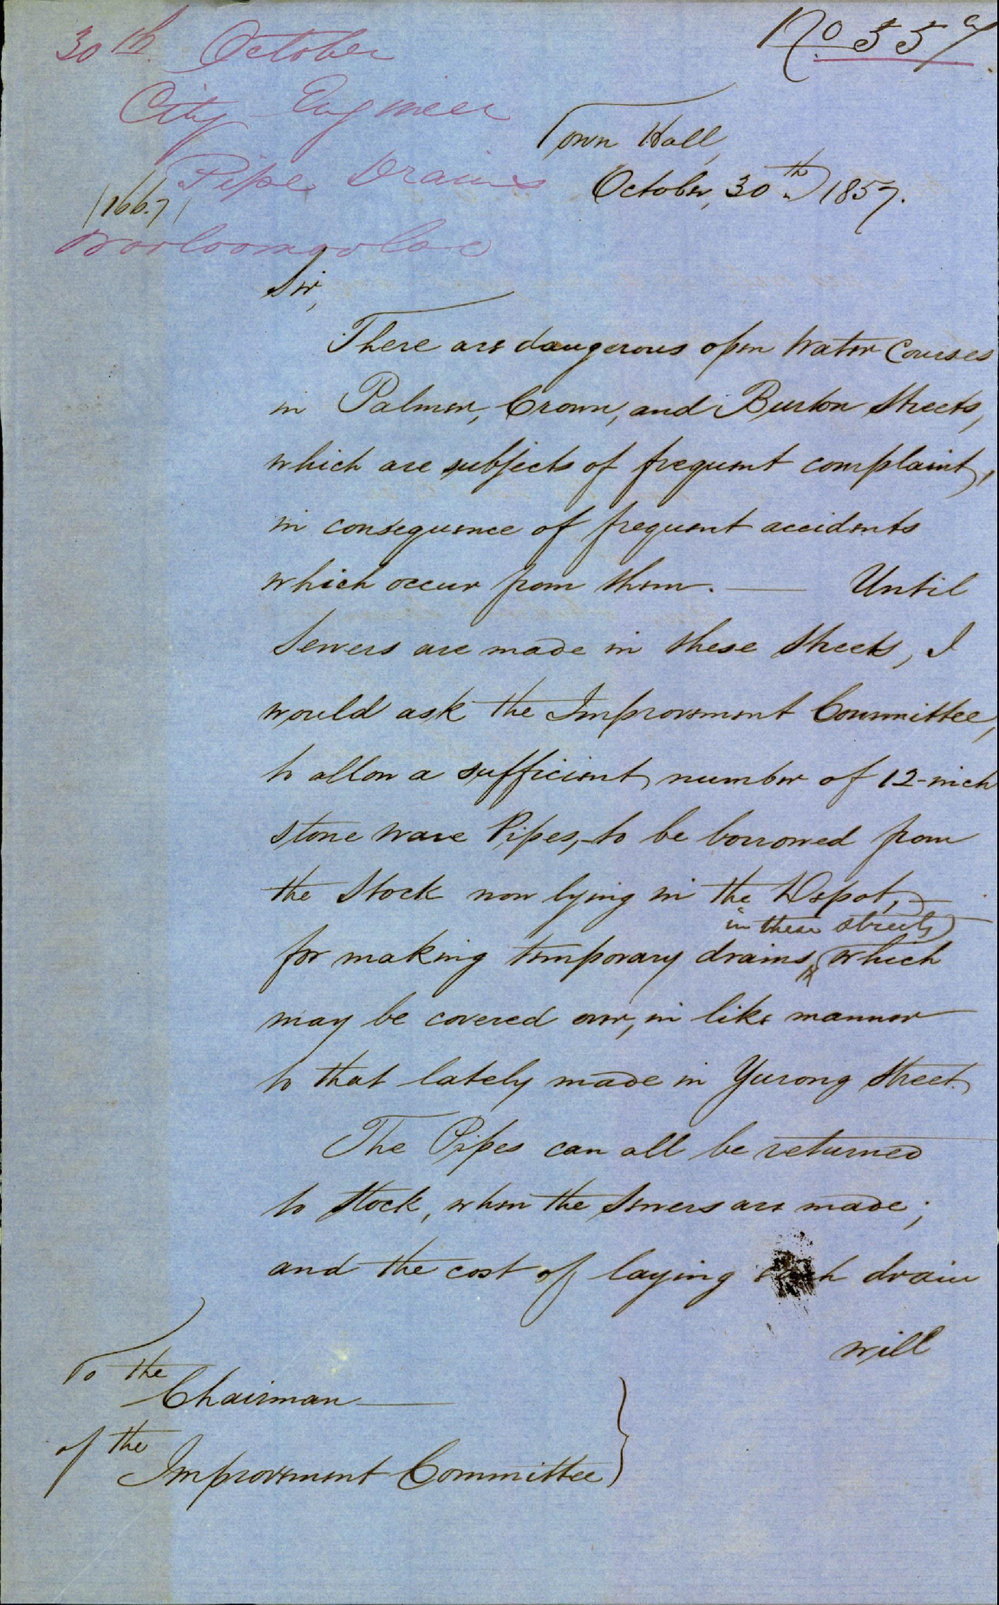 No 557
30th October
City Engineer
Pipe Drains
1667
Woolloomooloo
Town Hall,
October, 30th 1857.
Sir,
There are dangerous open Water Courses
in Palmer, Crown, and Burton Streets,
which are subjects of frequent complaint,
in consequence of frequent accidents
which occur from them. — Until
Sewers are made in these Streets, I
would ask the Improvement Committee,
to allow a sufficient number of 12-inch
Stone Ware Pipes, to be borrowed from
the Stock now lying in the Depot,
in these streets
for making temporary drains, which
may be covered over, in like manner
to that lately made in Yurong Street.
The Pipes can all be returned
to Stock, when the Sewers are made;
and the cost of laying each drain
will
To the
Chairman
of the
Improvement Committee